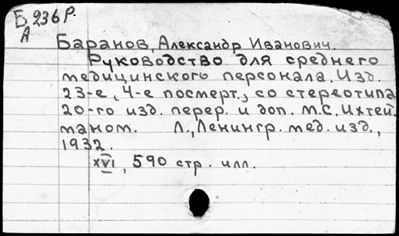 Б 236 Р.
А
Баранов, Александр Иванович.
Руководство для среднего
медицинского персонала. Изд.
23-е, 4-е посмерт., со стереотипа
20-го изд. перер. и доп. М.С. Ихтей-
маном. Л., Ленингр. мед. изд.,
1932.
XVI, 590 стр. илл.